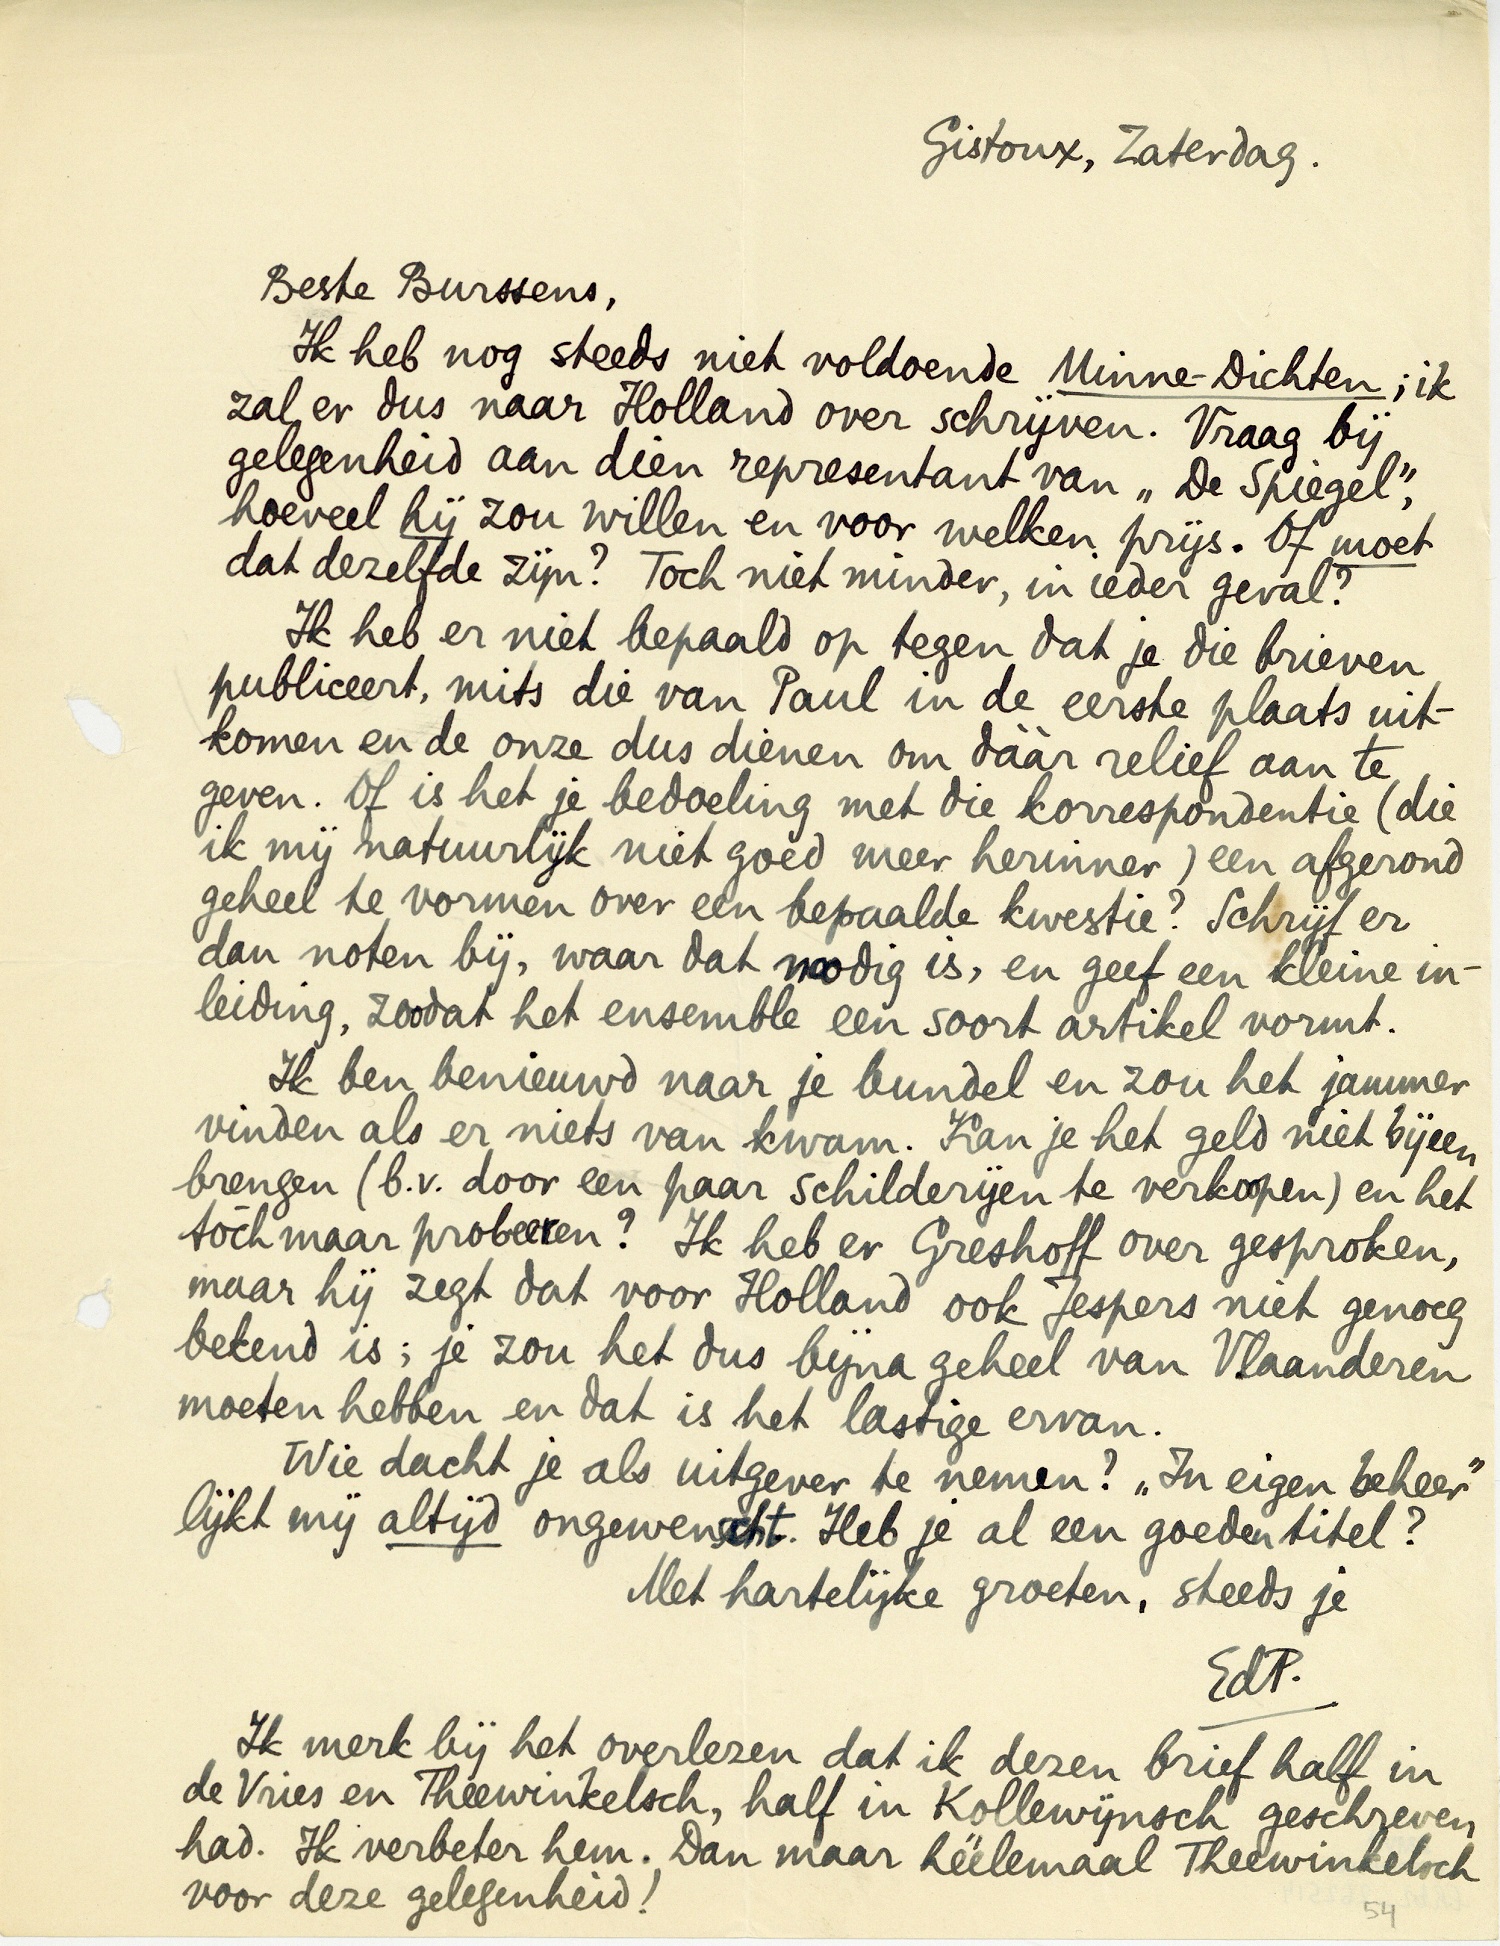 Gistoux, Zaterdag.
Beste Burssens,
Ik heb nog steeds niet voldoende Minne-Dichten; ik
zal er dus naar Holland over schrijven. Vraag bij
gelegenheid aan dien representant van „De Spiegel”,
hoeveel hij zou willen en voor welken prijs. Of moet
dat dezelfde zijn? Toch niet minder, in ieder geval?
Ik heb er niet bepaald op tegen dat je die brieven
publiceert, mits die van Paul in de eerste plaats uit-
komen en de onze dus dienen om dààr relief aan te
geven. Of is het je bedoeling met die korrespondentie (die
ik mij natuurlijk niet goed meer herinner) een afgerond
geheel te vormen over een bepaalde kwestie? Schrijf er
dan noten bij, waar dat noodig is, en geef een kleine in-
leiding, zoodat het ensemble een soort artikel vormt.
Ik ben benieuwd naar je bundel en zou het jammer
vinden als er niets van kwam. Kan je het geld niet bijeen
brengen (b.v. door een paar schilderijen te verkoopen) en het
tòch maar probeeren? Ik heb er Greshoff over gesproken,
maar hij zegt dat voor Holland ook Jespers niet genoeg
bekend is; je zou het dus bijna geheel van Vlaanderen
moeten hebben en dat is het lastige ervan.
Wie dacht je als uitgever te nemen? „In eigen beheer”
lijkt mij altijd ongewenscht. Heb je al een goeden titel?
Met hartelijke groeten, steeds je
EdP.
Ik merk bij het overlezen dat ik dezen brief half in
de Vries en Theewinkelsch, half in Kollewijnsch geschreven
had. Ik verbeter hem. Dan maar héélemaal Theewinkelsch
voor deze gelegenheid!
54